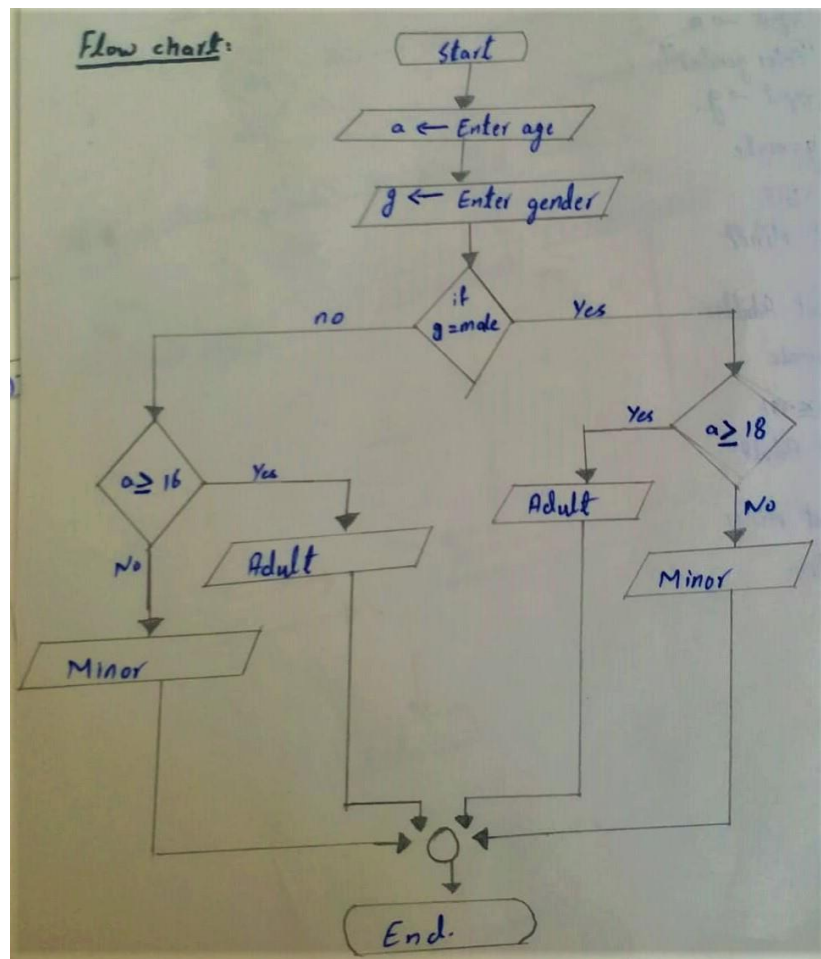 Flow chart:
Start
a ← Enter age
g ← Enter gender
if
g=male
no
Yes
a ≥ 18
Yes
Adult
No
Minor
a ≥ 16
Yes
Adult
No
Minor
End.